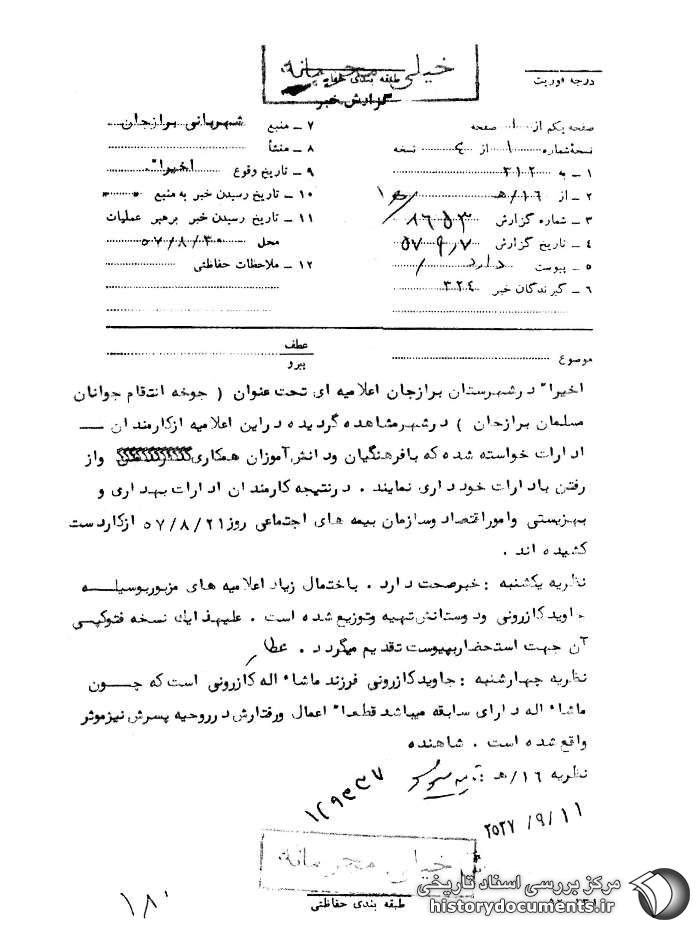 خیلی محرمانه
درجه فوریت
طبقه بندی حفاظتی
گزارش خبر
صفحه یکم از ۱ صفحه
نسخه شماره ۱ از ٤ نسخه
۱ ـ به ۳۱۲
۲ ـ از ۱۶/هـ
۳ ـ شماره گزارش
٤ ـ تاریخ گزارش
۵ ـ پیوست دارد
۶ ـ گیرندگان خبر ۳۲٤
۷ ـ منبع شهربانی برازجان
۸ ـ منشأ
۹ ـ تاریخ وقوع اخیراً
۱۰ ـ تاریخ رسیدن خبر به منبع
۱۱ ـ تاریخ رسیدن خبر برهبر عملیات
محل ۵۷/۸/۳۰
۱۲ ـ ملاحظات حفاظتی
موضوع
عطف
پیرو
اخیراً درشهرستان برازجان اعلامیه ای تحت عنوان ( جوخه انتقام جوانان
مسلمان برازجان ) درشهرمشاهده گردیده دراین اعلامیه ازکارمندان ـــ
ادارات خواسته شده که بافرهنگیان ودانش آموزان همکاری واز
رفتن بادارات خودداری نمایند . درنتیجه کارمندان ادارات بهداری و
بهزیستی وامور اقتصاد وسازمان بیمه های اجتماعی روز ۵۷/۸/۲۱ ازکاردست
کشیده اند .
نظریه یکشنبه : خبرصحت دارد . باختمال زیاد اعلامیه های مزبوربوسیله
جاویدکازرونی ودوستانش تهیه وتوزیع شده است . علیهذا یك نسخه فتوکپی
آن جهت استحضاربپیوست تقدیم میگردد . عطار
نظریه چهارشنبه : جاویدکازرونی فرزند ماشاء اله کازرونی است که چون
ماشاء اله دارای سابقه میباشد قطعاً اعمال ورفتارش درروحیه پسرش نیزموثر
واقع شده است . شاهنده
نظریه ۱۶/هـ :
۲۵۳۷/۹/۱۱
خیلی محرمانه
طبقه بندی حفاظتی
۱۸۰
مرکز بررسی اسناد تاریخی
historydocuments.ir